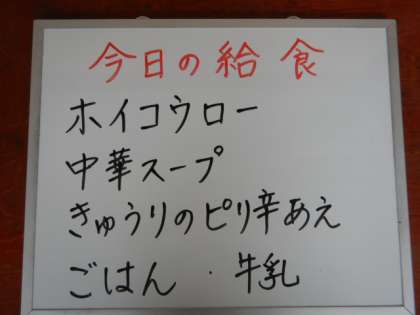 今日の給食
ホイコウロー
中華スープ
きゅうりのピリ辛あえ
ごはん ・ 牛乳